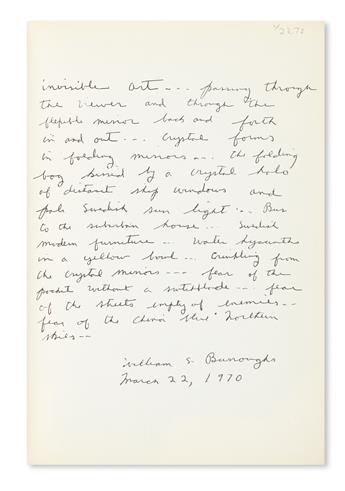 invisible art --- passing through
the viewer and through the
flexible mirror back and forth
in and out --- crystal forms
in folding mirrors --- the folding
boy kissed by a crystal halo
of distant shop windows and
pale Swedish sun light --- Bus
to the suburban house --- Swedish
modern furniture --- water hyacinths
in a yellow bowl --- crumbling from
the crystal mirrors --- fear of the
pocket without a switchblade --- fear
of the streets empty of enemies --
fear of the china blue Northern
skies --
William S. Burroughs
March 22, 1970